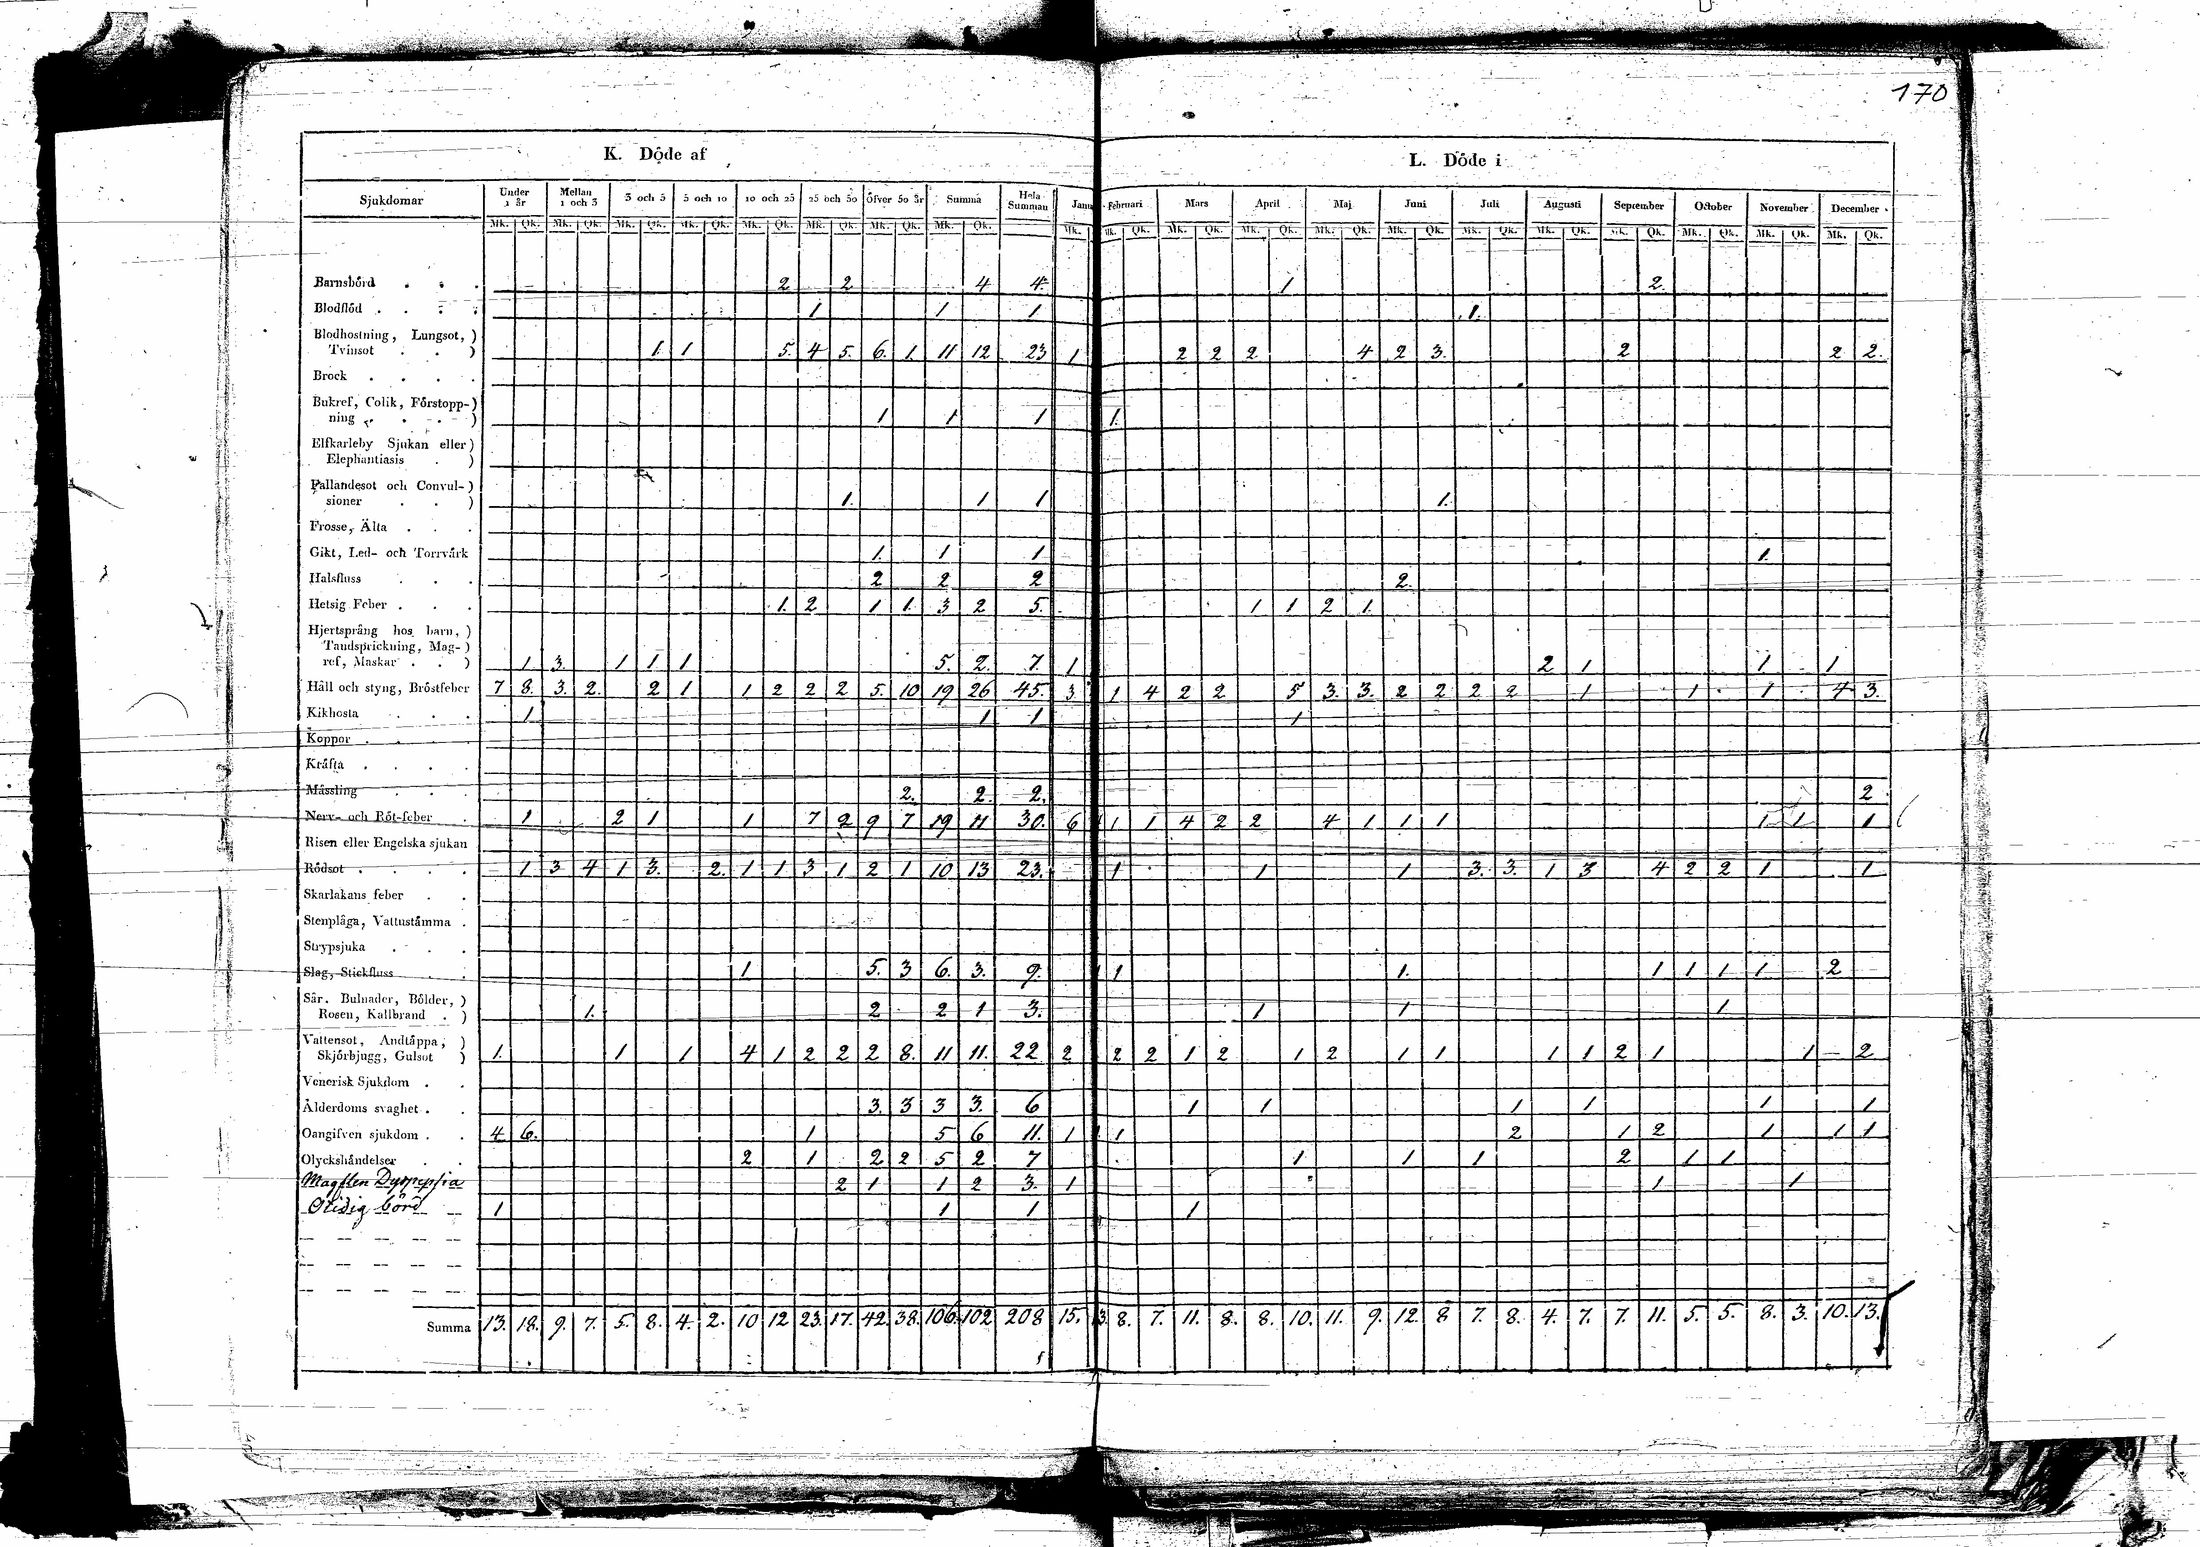 170
K. Döde af
L. Döde i
Sjukdomar Under 1 år Mellan 1 och 3 3 och 5 5 och 10 10 och 25 25 och 50 Öfver 50 år Summa Hela Summan Janu Februari Mars April Maj Juni Juli Augusti September October November December
Mk. Qk. Mk. Qk. Mk. Qk. Mk. Qk. Mk. Qk. Mk. Qk. Mk. Qk. Mk. Qk. Mk. Mk. Qk. Mk. Qk. Mk. Qk. Mk. Qk. Mk. Qk. Mk. Qk. Mk. Qk. Mk. Qk. Mk. Qk. Mk. Qk. Mk. Qk.
Barnsbörd . . . 2 2 4 4. 1 2.
Blodflöd . . . . 1 1 1 1.
Blodhostning, Lungsot, )
Tvinsot . . ) 1. 1 5. 4 5. 6. 1. 11 12 23 1 2 2 2 4 2 3. 2 2 2.
Brock . . . .
Bukref, Colik, Förstopp-)
ning . . . ) 1 1 1 1.
Elfkarleby Sjukan eller )
Elephantiasis . )
Fallandesot och Convul-)
sioner . . ) 1. 1 1 1.
Frosse, Älta . . .
Gikt, Led- och Torrvärk 1. 1 1 1.
Halsfluss . . . 2 2 2 2.
Hetsig Feber . . . 1. 2 1 1. 3 2 5. 1 1 2 1.
Hjertsprång hos barn, )
Tandsprickning, Mag- )
ref, Maskar . . ) 1 3. 1 1 1 5. 2. 7. 1 2 1 1 1
Håll och styng, Bröstfeber 7 8. 3. 2. 2 1 1 2 2 2 5. 10 19 26 45. 3. 1 4 2 2 5 3. 3. 2 2 2 2 1 1 1 4 3.
Kikhosta . . . 1. 1 1 1
Koppor . . .
Kräfta . . . .
Mässling . . . 2. 2. 2. 2
Nerv- och Röt-feber . 1 2 1 1 7 2 9 7 19 11 30. 6 1 1 1 4 2 2 4 1 1 1 1 1 1
Risen eller Engelska sjukan
Rödsot . . . . 1 3 4 1 3. 2. 1 1 3 1 2 1 10 13 23. 1 1 1 3. 3. 1 3 4 2 2 1 1
Skarlakans feber . .
Stenplåga, Vattustämma .
Strypsjuka . . .
Slag, Stickfluss . . 1 5. 3 6. 3. 9. 1 1 1. 1 1 1 1 2
Sår. Bulnader, Bölder, )
Rosen, Kallbrand . ) 1. 2 2 1 3. 1 1 1
Vattensot, Andtäppa, )
Skjörbjugg, Gulsot ) 1. 1 1 4 1 2 2 2 8. 11 11. 22 2 2 2 1 2 1 2 1 1 1 1 2 1 1 2
Venerisk Sjukdom . .
Ålderdoms svaghet . . 3. 3 3 3. 6 1 1 1 1 1 1
Oangifven sjukdom . . 4 6. 1 5 6 11. 1 1 1 2 1 2 1 1 1
Olyckshändelser . . 2 1 2 2 5 2 7 1 1 1 2 1 1
Magflen Dyspepsia 2 1 1 2 3. 1 1 1
Otidig börd 1 1 1 1
Summa 13. 18. 9. 7. 5. 8. 4. 2. 10 12 23. 17. 42. 38. 106. 102 208 15. 13. 8. 7. 11. 8. 8. 10. 11. 9. 12. 8 7. 8. 4. 7. 7. 11. 5. 5. 8. 3. 10. 13.